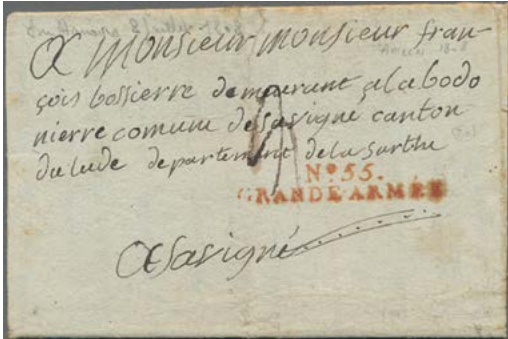 A monsieur monsieur fran-
çois bossierre demeurant a la bodo
nierre comune de Savigné canton
du lude departement de la Sarthe
N° 55.
GRANDE-ARMÉE
A Savigné